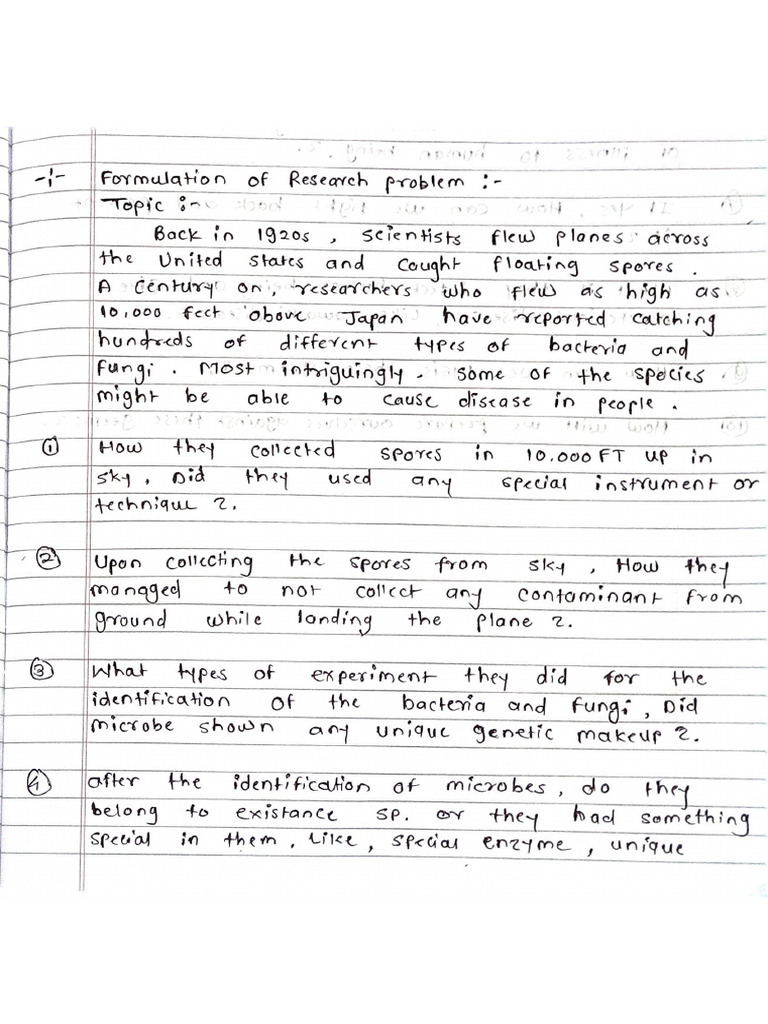 -:- Formulation of Research problem :-
Topic :-
Back in 1920s, scientists flew planes across
the United states and cought floating spores.
A century on, researchers who flew as high as
10,000 feet above Japan have reported catching
hundreds of different types of bacteria and
fungi. Most intriguingly. some of the species
might be able to cause disease in people.
① How they collected spores in 10.000 FT up in
sky, Did they used any special instrument or
technique ?.
② Upon collecting the spores from sky, How they
managed to not collect any contaminant from
ground while landing the plane ?.
③ What types of experiment they did for the
identification of the bacteria and fungi, Did
microbe shown any unique genetic makeup ?.
④ after the identification of microbes, do they
belong to existance sp. or they had something
special in them, Like, special enzyme, unique